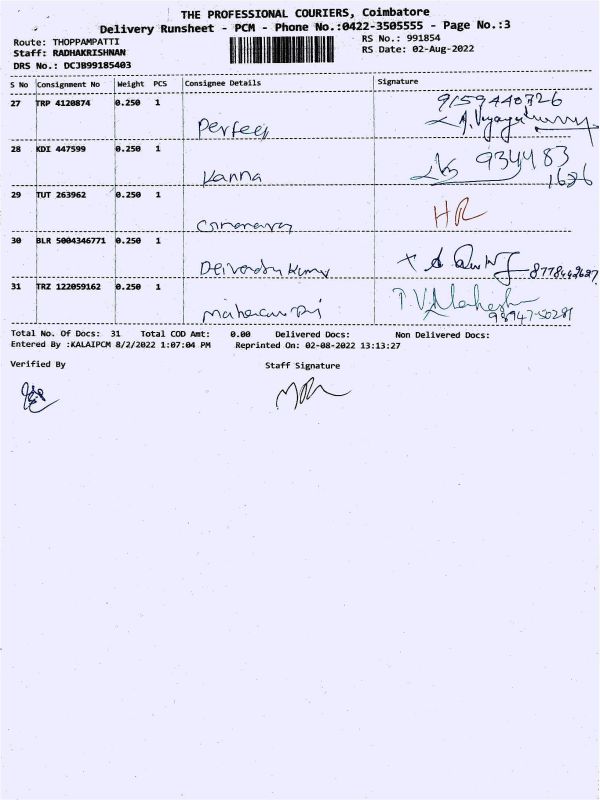 THE PROFESSIONAL COURIERS, Coimbatore
Delivery Runsheet - PCM - Phone No.:0422-3505555 - Page No.:3
Route: THOPPAMPATTI
RS No.: 991854
Staff: RADHAKRISHNAN
RS Date: 02-Aug-2022
DRS No.: DCJB99185403
S No Consignment No Weight PCS Consignee Details Signature
27 TRP 4120874 0.250 1 9159440326
Perfect
28 KDI 447599 0.250 1 934483
Kanna 1626
29 TUT 263962 0.250 1 HR
30 BLR 5004346771 0.250 1
8778442627
31 TRZ 122059162 0.250 1 P.V. Mahesh
98947-50281
Total No. Of Docs: 31 Total COD Amt: 0.00 Delivered Docs: Non Delivered Docs:
Entered By :KALAIPCM 8/2/2022 1:07:04 PM Reprinted On: 02-08-2022 13:13:27
Verified By Staff Signature